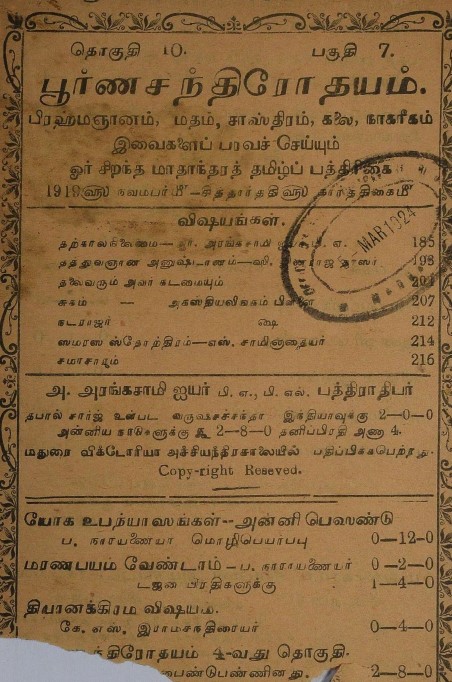 தொகுதி 10. பகுதி 7.
பூர்ணசந்திரோதயம்.
பிரஹ்மஞானம், மதம், சாஸ்திரம், கலை, நாகரீகம்
இவைகளைப் பரவச் செய்யும்
ஓர் சிறந்த மாதாந்தரத் தமிழ்ப் பத்திரிகை
1919ளு நவம்பர்மீ—சித்தார்த்திளு கார்த்திகைமீ
விஷயங்கள்.
தற்காலநிலைமை— அரங்கசாமி ஏ. 185
தத்துவஞான அனுஷ்டானம்— 193
தலைவரும் அவர் கடமையும் 201
சுகம் — அகஸ்தியலிங்கம் பிள்ளை 207
நடராஜர் ஷை 212
ஸமரஸ ஸ்தோத்திரம்—எஸ். சாமினாதையர் 214
சமாசாரம் 216
MAR 1924
அ. அரங்கசாமி ஐயர் பி. ஏ., பி. எல். பத்திராதிபர்
தபால் சார்ஜ் உள்பட வருஷசந்தா இந்தியாவுக்கு 2—0—0
அன்னிய நாடுகளுக்கு ரூ 2—8—0 தனிப்பிரதி அணா 4.
மதுரை விக்டோரியா அச்சியந்திரசாலையில் பதிப்பிக்கபெற்றது.
Copy-right Reseved.
யோக உபந்யாஸங்கள்--அன்னி பெஸண்டு
ப. நாராயணையர் மொழிபெயர்ப்பு 0—12—0
மரணபயம் வேண்டாம்—ப. நாராயணையர் 0—2—0
டஜன் பிரதிகளுக்கு 1—4—0
தியானக்கிரம விஷயம்.
கே. எஸ். இராமசந்திரையர் 0—4—0
ந்திரோதயம் 4-வது தொகுதி.
பைண்டுபண்ணினது. 2—8—0